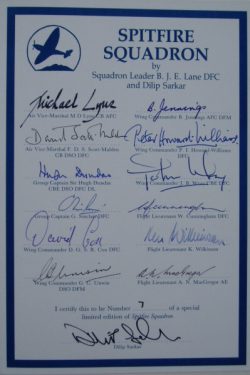 SPITFIRE
SQUADRON
by
Squadron Leader B. J. E. Lane DFC
and Dilip Sarkar
Michael Lyne
B. Jennings
Air Vice-Marshal M D Lyne CB AFC
Wing Commander B. Jennings AFC DFM
David Scott-Malden
Peter Howard-Williams
Air Vice-Marshal F. D. S. Scott-Malden
GB DSO DFC
Wing Commander P. I. Howard-Williams
DFC
Hugh Dundas
Group Captain Sir Hugh Dundas
CBE DSO DFC DL
Wing Commander J. B.
Group Captain G.
DFC
W Cunningham
Flight Lieutenant W. Cunningham DFC
David Cox
Ken Wilkinson
Wing Commander D. G. S. R. Cox DFC
Flight Lieutenant K. Wilkinson
G C Unwin
A. N. MacGregor
Wing Commander G. C. Unwin
DSO DFM
Flight Lieutenant A. N. MacGregor AE
I certify this to be Number 7 of a special
limited edition of Spitfire Squadron
Dilip Sarkar
Dilip Sarkar